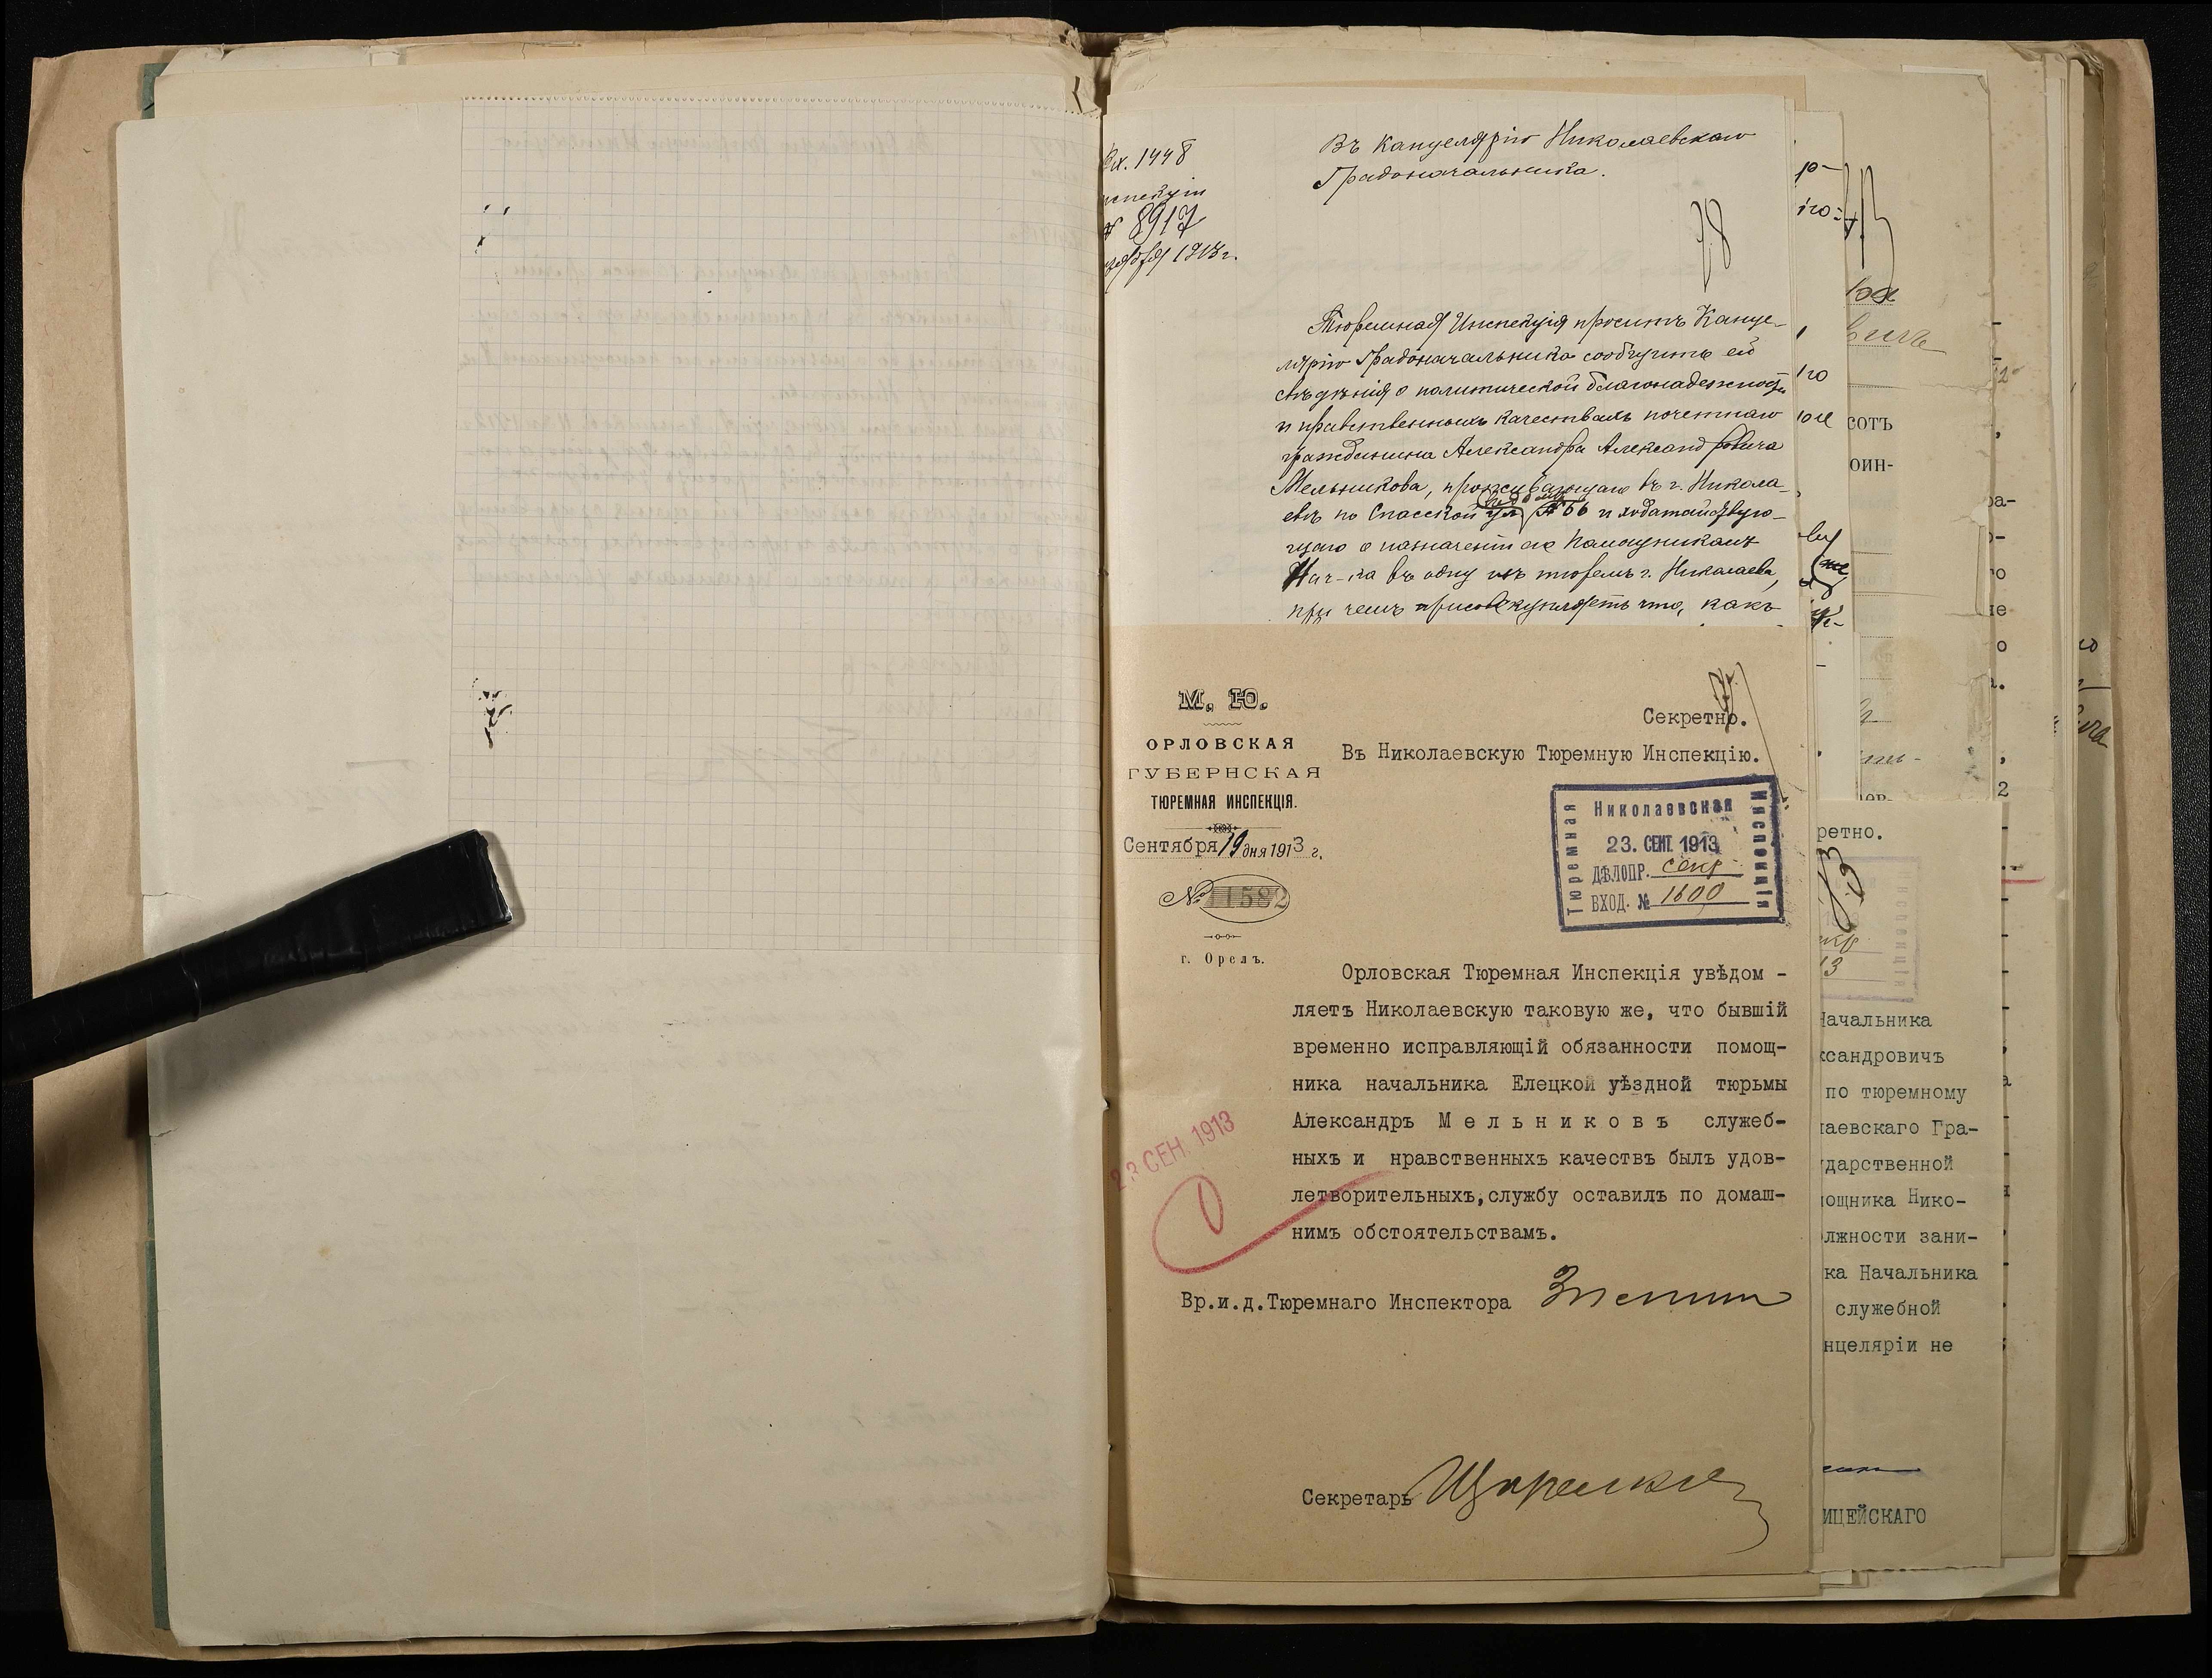 Вх. 1448
№ 8917
1913 г.
Въ Канцелярію Николаевскаго
Градоначальника.
78
Тюремная Инспекція проситъ Канце-
лярію Градоначальника сообщить ей
свѣдѣнія о политической благонадежности
и нравственныхъ качествахъ почетнаго
гражданина Александра Александровича
Мельникова, проживающаго въ г. Никола-
евѣ по Спасской ул. № 66 и ходатайствую-
щаго о назначеніи его Помощникомъ
Нач-ка въ одну изъ тюремъ г. Николаева,
при чемъ присовокупляетъ что, какъ
М. Ю.
ОРЛОВСКАЯ
ГУБЕРНСКАЯ
ТЮРЕМНАЯ ИНСПЕКЦІЯ.
Сентября 19 дня 1913 г.
№ 11582
г. Орелъ.
Секретно.
Въ Николаевскую Тюремную Инспекцію.
Николаевская
Тюремная
Инспекція
23. СЕНТ. 1913
ДѢЛОПР. секр
ВХОД. № 1600
Орловская Тюремная Инспекція увѣдом -
ляетъ Николаевскую таковую же, что бывшій
временно исправляющій обязанности помощ-
ника начальника Елецкой уѣздной тюрьмы
Александръ Мельниковъ служеб-
ныхъ и нравственныхъ качествъ былъ удов-
летворительныхъ,службу оставилъ по домаш-
нимъ обстоятельствамъ.
23 СЕН. 1913
Вр.и.д.Тюремнаго Инспектора
Секретарь
сотъ
оин-
ретно.
Начальника
ксандровичъ
по тюремному
лаевскаго Гра-
ударственной
ощника Нико-
лжности зани-
ка Начальника
служебной
нцеляріи не
ИЦЕЙСКАГО